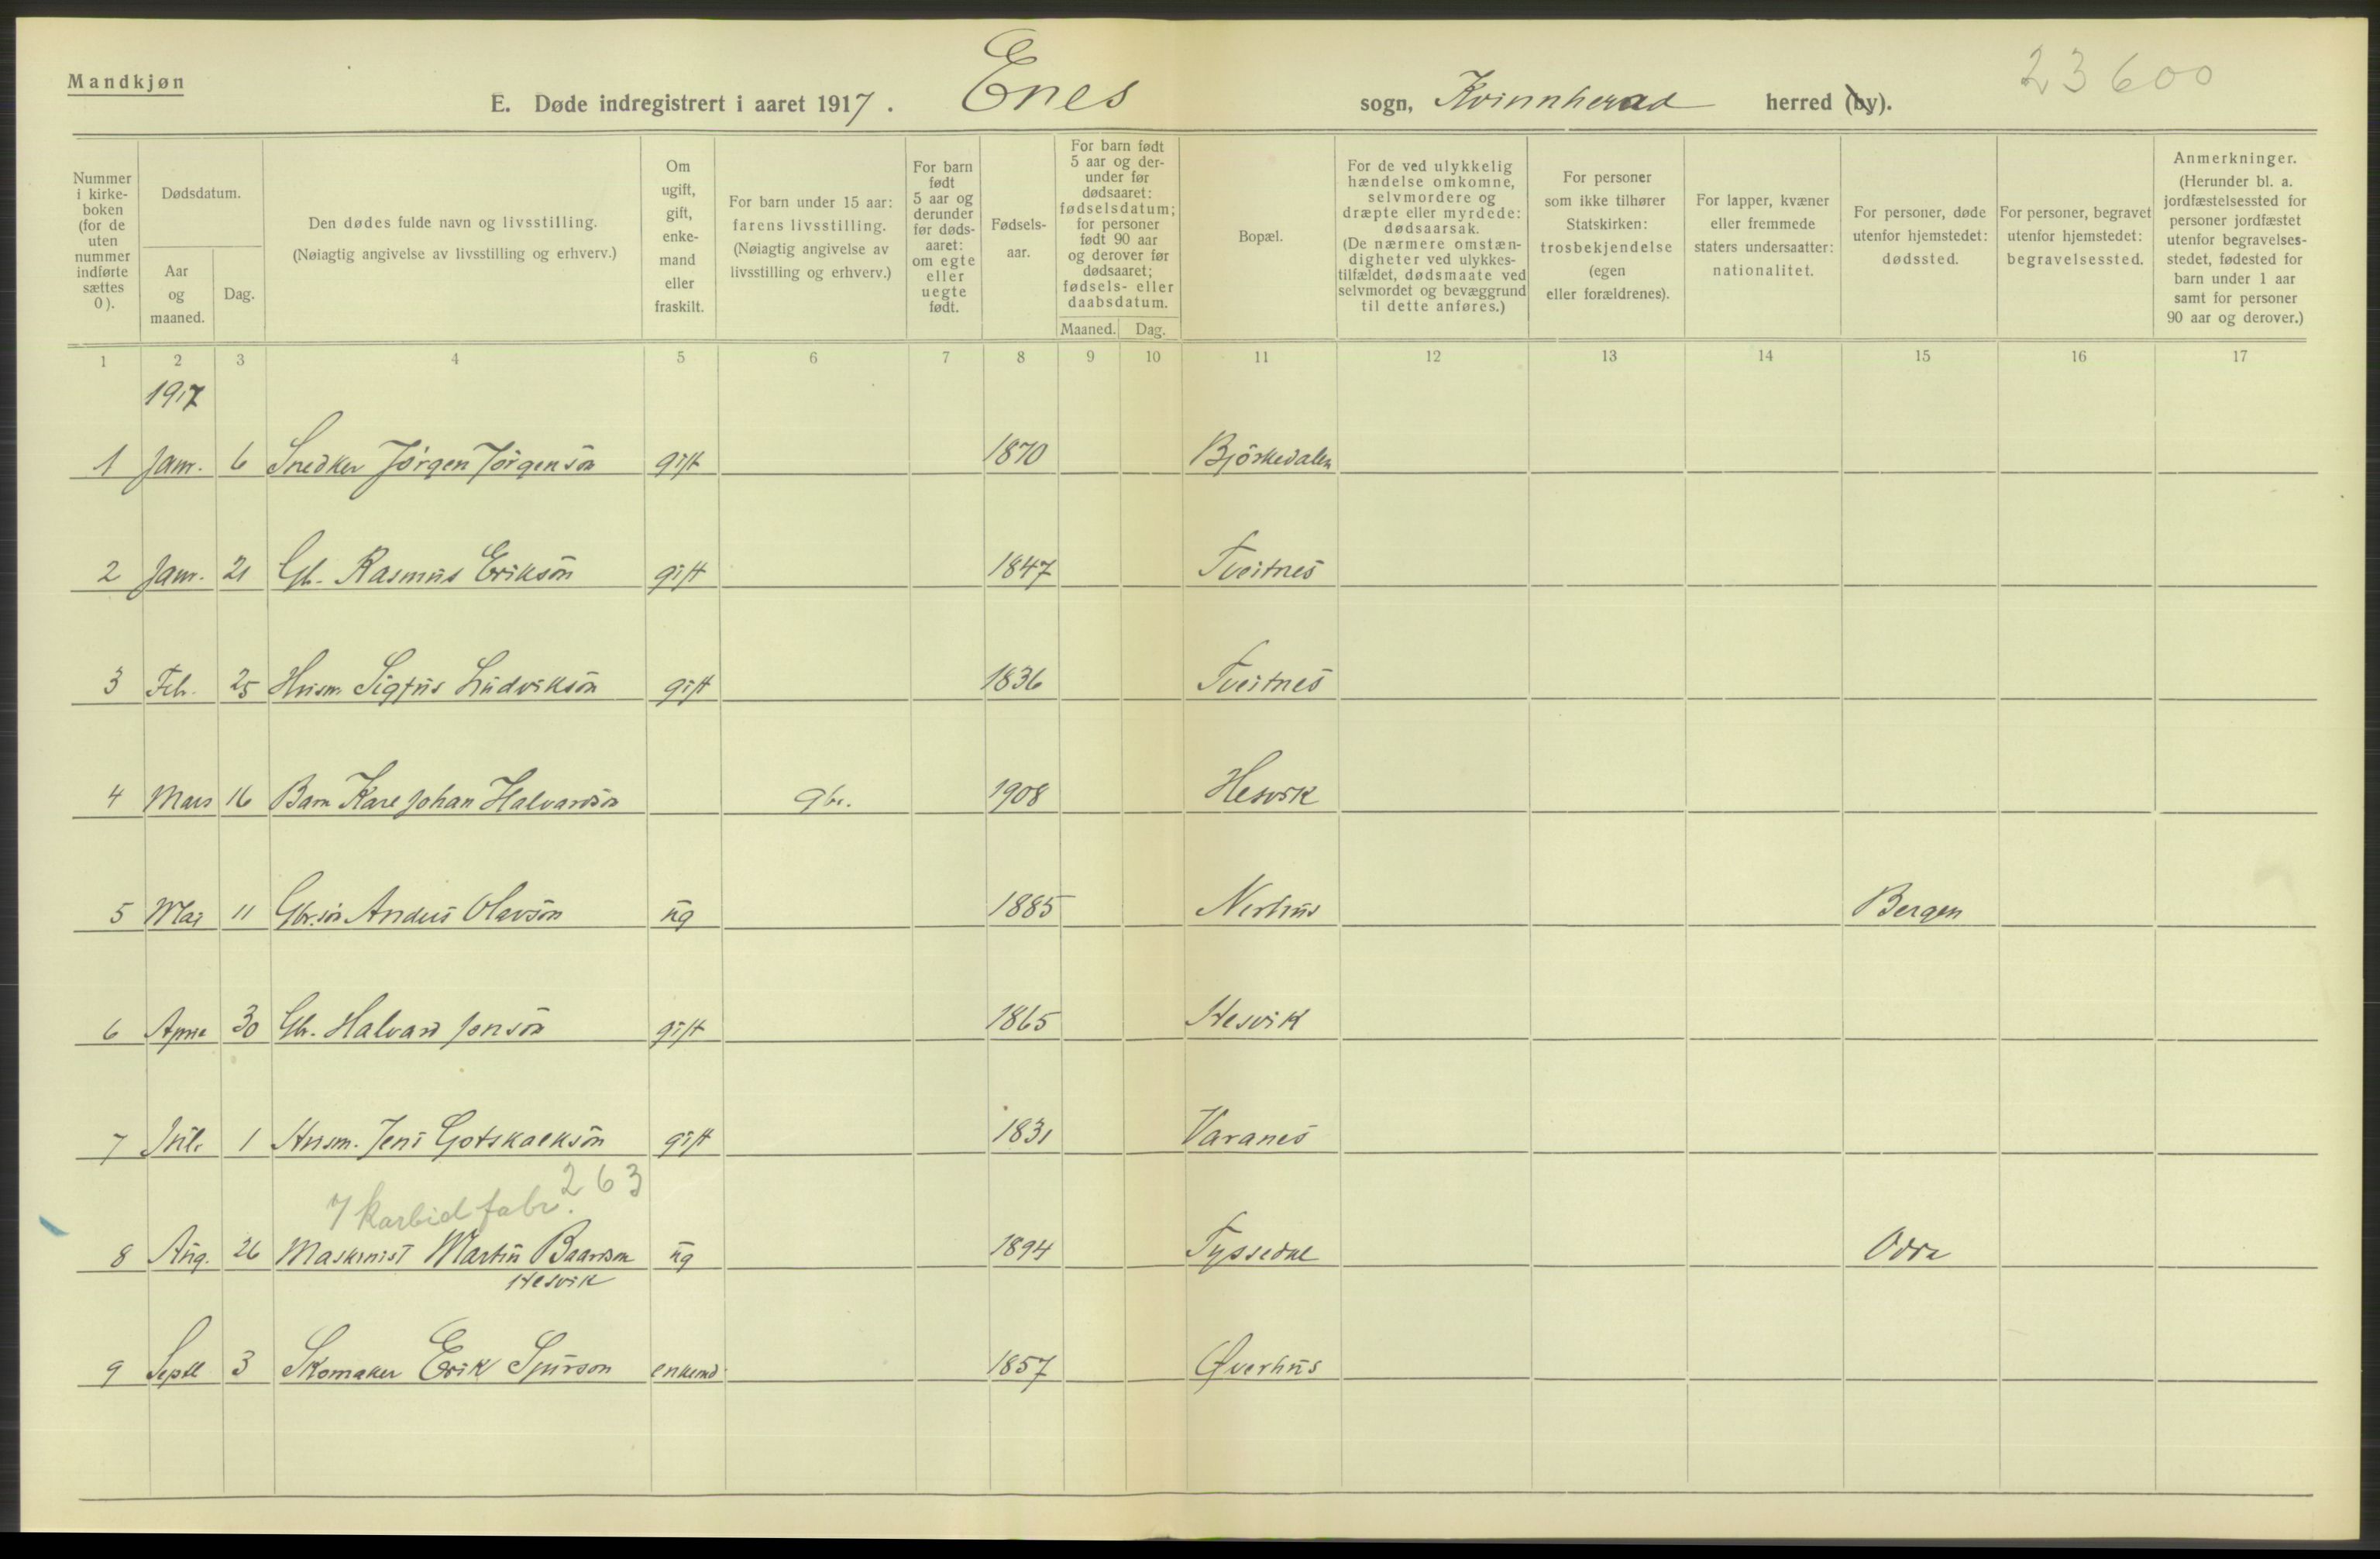 Mandkjøn
E. Døde indregistrert i aaret 1917. Enes sogn, Kvinnherad herred (by).
23 600
Nummer i kirke-boken (for de uten nummer indførte sættes 0).
Dødsdatum.
Aar og maaned.
Dag.
Den dødes fulde navn og livsstilling.
(Nøiagtig angivelse av livsstilling og erhverv.)
Om ugift, gift, enke-mand eller fraskilt.
For barn under 15 aar: farens livsstilling. (Nøiagtig angivelse av livsstilling og erhverv.)
For barn født 5 aar og derunder før døds-aaret: om egte eller uegte født.
Fødsels-aar.
For barn født 5 aar og der-under før dødsaaret: fødselsdatum; for personer født 90 aar og derover før dødsaaret; fødsels- eller daabsdatum.
Maaned. Dag.
Bopæl.
For de ved ulykkelig hændelse omkomne, selvmordere og dræpte eller myrdede: dødsaarsak. (De nærmere omstæn-digheter ved ulykkes-tilfældet, dødsmaate ved selvmordet og bevæggrund til dette anføres.)
For personer som ikke tilhører Statskirken: trosbekjendelse (egen eller forældrenes).
For lapper, kvæner eller fremmede staters undersaatter: nationalitet.
For personer, døde utenfor hjemstedet: dødssted.
For personer, begravet utenfor hjemstedet: begravelsessted.
Anmerkninger. (Herunder bl. a. jordfæstelsessted for personer jordfæstet utenfor begravelses-stedet, fødested for barn under 1 aar samt for personer 90 aar og derover.)
1 2 3 4 5 6 7 8 9 10 11 12 13 14 15 16 17
1917
1 Janr. 6 Snedker Jørgen Jørgensön gift 1870 Björkedalen
2 Janr. 21 Gb. Rasmus Eriksön gift 1847 Tveitnes
3 Feb. 25 Husm. Sigfus Ludviksön gift 1836 Tveitnes
4 Mars 16 Barn Kare Johan Halvardsön gbr. 1908 Hesvik
5 Mai 11 Gbr.sön Anders Olavsön ug 1885 Nerhus Bergen
6 April 30 Gb. Halvard Jonsön gift 1865 Hesvik
7 Juli 1 Husm. Jens Gotskalksön gift 1831 Varanes
7 karbidfabr. 263
8 Aug. 26 Maskinist Martin Baardson ug 1894 Tyssedal Odda
Hesvik
9 Septb 3 Skomaker Erik Sjurson enkemd 1857 Øverhus